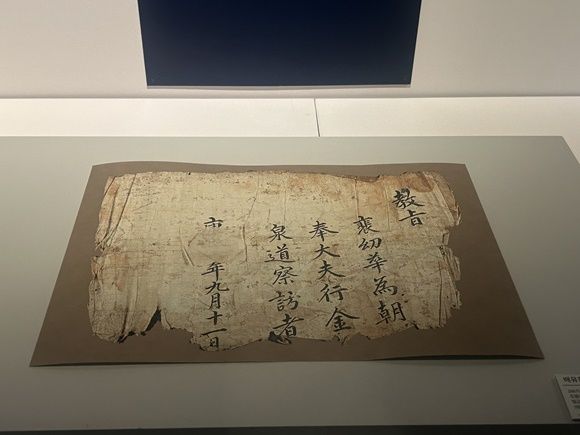 教旨
裵幼華為朝
奉大夫行金
泉道察訪者
年九月十一日
배유